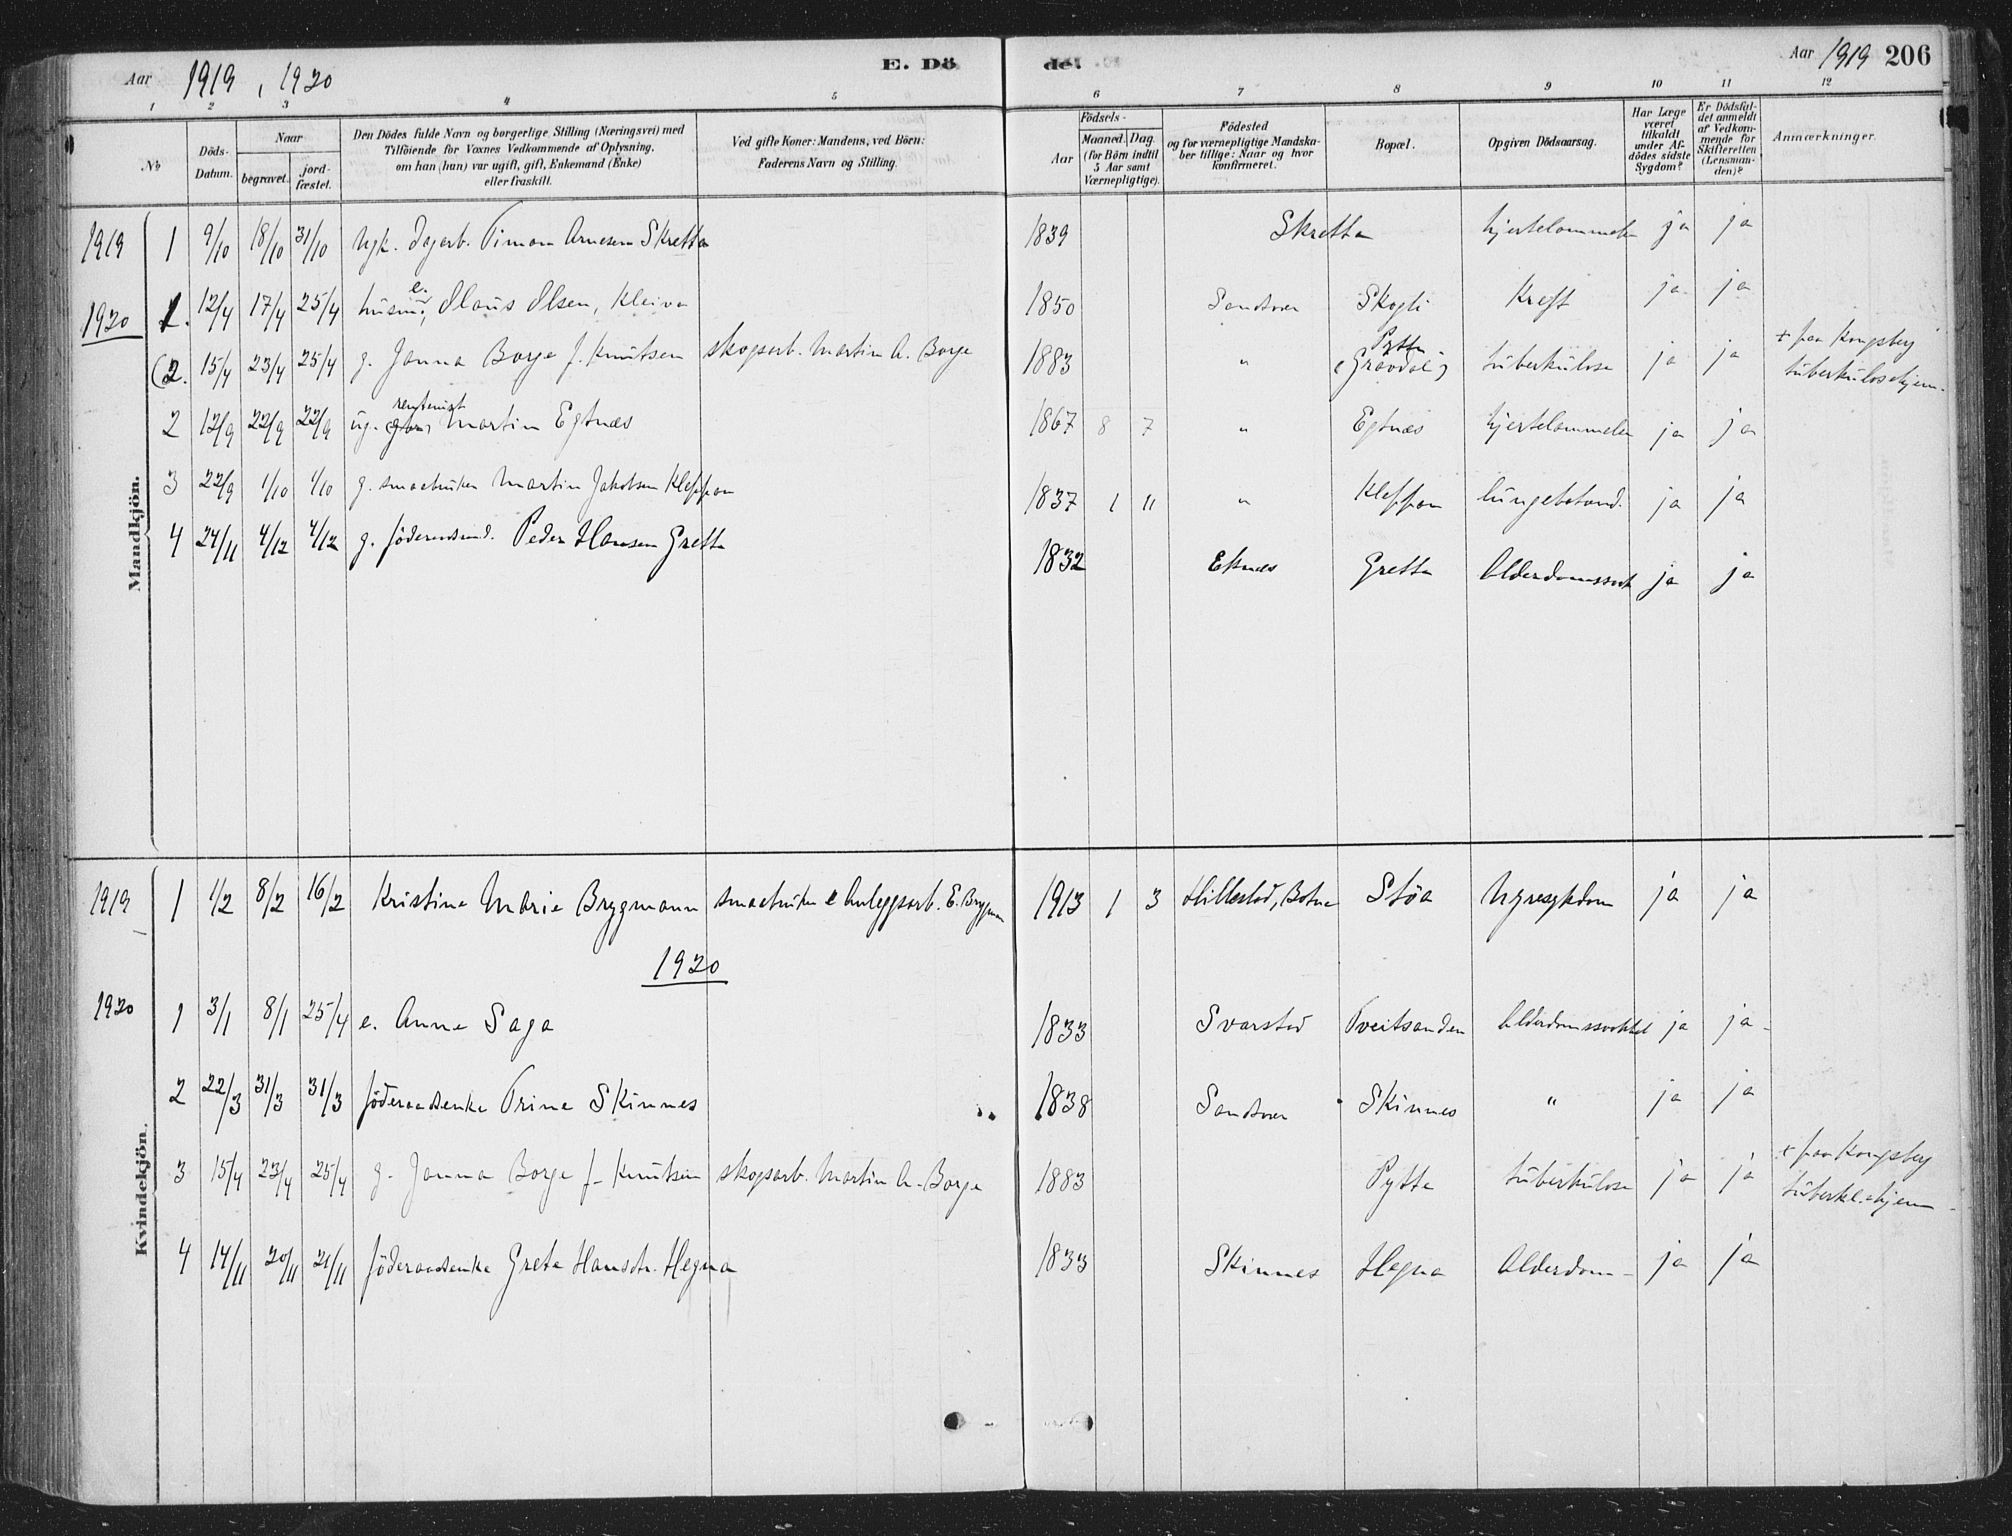 Aar 1919, 1920 E. Döde. Aar 1919 206
1 2 3 4 5 6 7 8 9 10 11 12
№ Döds-Datum. Naar begravet. jordfæstet. Den Dödes fulde Navn og borgerlige Stilling (Næringsvei) med Tilföiende for Voxnes Vedkommende af Oplysning, om han (hun) var ugift, gift, Enkemand (Enke) eller fraskilt. Ved gifte Koner: Mandens, ved Börn: Faderens Navn og Stilling. Födsels- Aar Maaned. Dag. (for Börn indtil 5 Aar samt Værnepligtige). Födested og for værnepligtige Mandskaber tillige: Naar og hvor konfirmeret. Bopæl. Opgiven Dödsaarsag. Har Læge været tilkaldt under Afdödes sidste Sygdom? Er Dödsfaldet anmeldt af Vedkommende for Skifteretten (Lensmanden)? Anmærkninger.
Mandkjön.
1919 1 9/10 18/10 31/10 Arnesen Skretta 1839 Skretta ja ja
1920 1. 12/4 17/4 25/4 e. Olaus Olsen, Kleiva 1850 Sandsver Skogli Kreft ja ja
(2. 15/4 23/4 25/4 g. Janna Borge f. Knutsen skogsarb. Martin A. Borge 1883 " Pytta (Gravdal) tuberkulose ja ja + paa Kongsberg tuberkulosehjem.
2 12/9 22/9 22/9 ug. Martin Egtnæs 1867 8 7 " Egtnæs ja ja
3 22/9 1/10 1/10 g. smaabruker Martin Jakobsen Kleppan 1837 1 11 " Kleppan ja ja
4 24/11 4/12 4/12 g. Peder Hansen Gretta 1832 Gretta ja ja
Kvindekjön.
1919 1 1/2 8/2 16/2 Kristine Marie Brygmann smaabruker & Anlegsarb. E. Brygman 1913 1 3 Hillestad, Botne Stöa Nyresykdom ja ja
1920
1920 1 3/1 8/1 25/4 e. Anne Saga 1833 Svarstad Tveitsanden ja ja
2 22/3 31/3 31/3 föderaadsenke Trine Skinnes 1838 Sandsver Skinnes " ja ja
3 15/4 23/4 25/4 g. Janna Borge f. Knutsen skogsarb. Martin A. Borge 1883 Pytta tuberkulose ja ja + paa Kongsberg
4 14/11 20/11 21/11 föderaadsenke Grete Hansdtr. Hegna 1833 Skinnes Hegna Alderdom ja ja